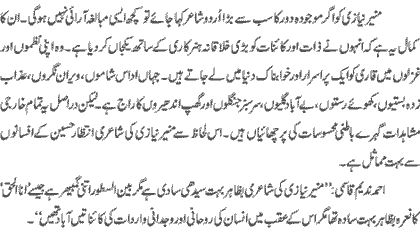 منیر نیازی کو اگر موجودہ دور کا سب سے بڑا اُردو شاعر کہا جائے تو کچھ ایسی مبالغہ آرائی نہیں ہوگی۔ ان کا
کمال یہ ہے کہ انہوں نے ذات اور کائنات کو بڑی خلاقانہ ہنر کاری کے ساتھ یکجاں کر دیا ہے۔ وہ اپنی نظموں اور
غزلوں میں قاری کو ایک پراسرار اور خوابناک دنیا میں لے جاتے ہیں۔ جہاں اداس شاموں، ویران نگروں، عذاب
زدہ بستیوں، کھوئے رستوں، بے آباد گلیوں، سرسبز جنگلوں اور گھپ اندھیروں کا راج ہے۔ لیکن دراصل یہ تمام خارجی
مشاہدات گہرے باطنی محسوسات کی پرچھائیاں ہیں۔ اس لحاظ سے منیر نیازی کی شاعری انتظار حسین کے افسانوں
سے بہت مماثل ہے۔
احمد ندیم قاسمی: ’’منیر نیازی کی شاعری بظاہر بہت سیدھی سادی ہے مگر بین السطور اتنی گھمبیر ہے جیسے ’’انا الحق‘‘
کا نعرہ بظاہر بہت سادہ تھا مگر اس کے عقب میں انسان کی روحانی اور وجدانی واردات کی کائناتیں آباد تھیں‘‘۔